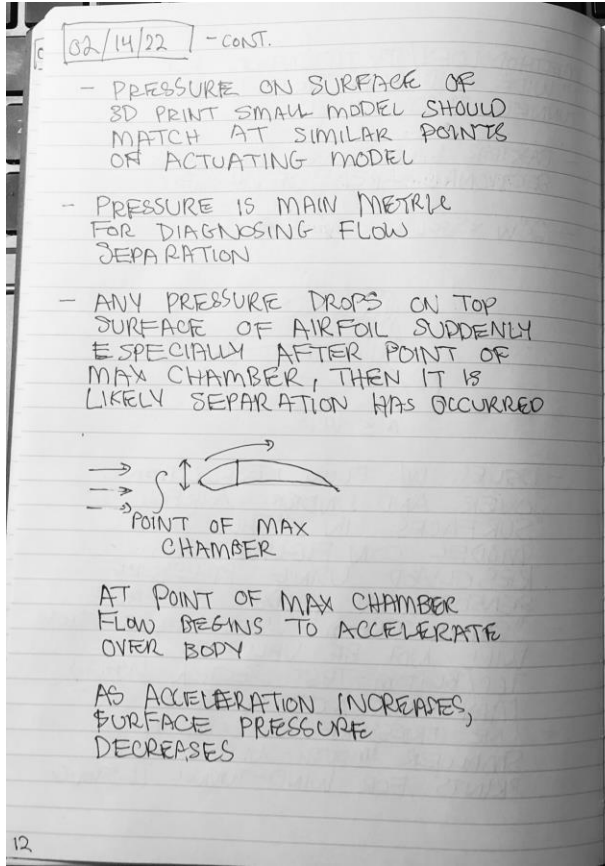 02/14/22 - CONT.
- PRESSURE ON SURFACE OF
3D PRINT SMALL MODEL SHOULD
MATCH AT SIMILAR POINTS
OF ACTUATING MODEL
- PRESSURE IS MAIN METRIC
FOR DIAGNOSING FLOW
SEPARATION
- ANY PRESSURE DROPS ON TOP
SURFACE OF AIRFOIL SUDDENLY
ESPECIALLY AFTER POINT OF
MAX CHAMBER, THEN IT IS
LIKELY SEPARATION HAS OCCURRED
POINT OF MAX
CHAMBER
AT POINT OF MAX CHAMBER
FLOW BEGINS TO ACCELERATE
OVER BODY
AS ACCELERATION INCREASES,
SURFACE PRESSURE
DECREASES
12